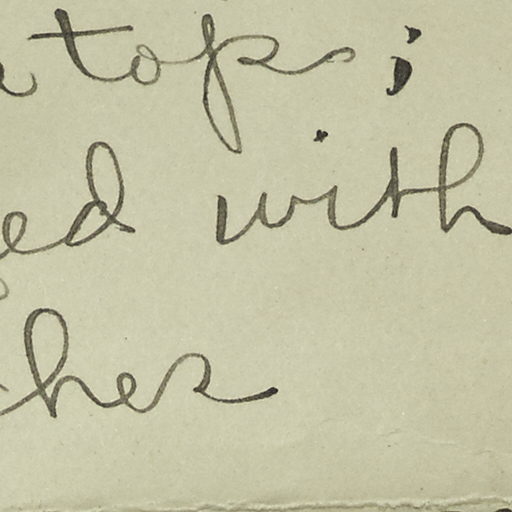 top;
ed with
hes